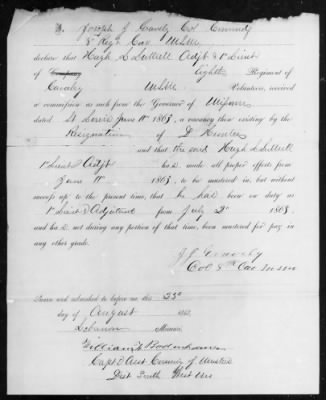 I, Joseph J Gravely Col Commdg
8 Regt Cav M.S.M.
declare that Hugh L Adjt & 1st Lieut
of Company Eighth Regiment of
Cavalry M.S.M. Volunteers, received
a commission as such from the Governor of Missouri
dated St Louis June 11th 1863, a vacancy then existing by the
Resignation of D Hunter
and that the said Hugh L
1st Lieut & Adjt has made all proper efforts from
June 11th 1863, to be mustered in, but without
success up to the present time, that he has been on duty as
1st Lieut & Adjutant from July 2d 1863,
and has not during any portion of that time, been mustered for pay in
any other grade.
J J Gravely
Col 8th Cav M.S.M.
Sworn and subscribed to before me this
day of August 186
Lebanon Missouri
William
Capt & Asst Commsy of Musters
Dist South West Mo